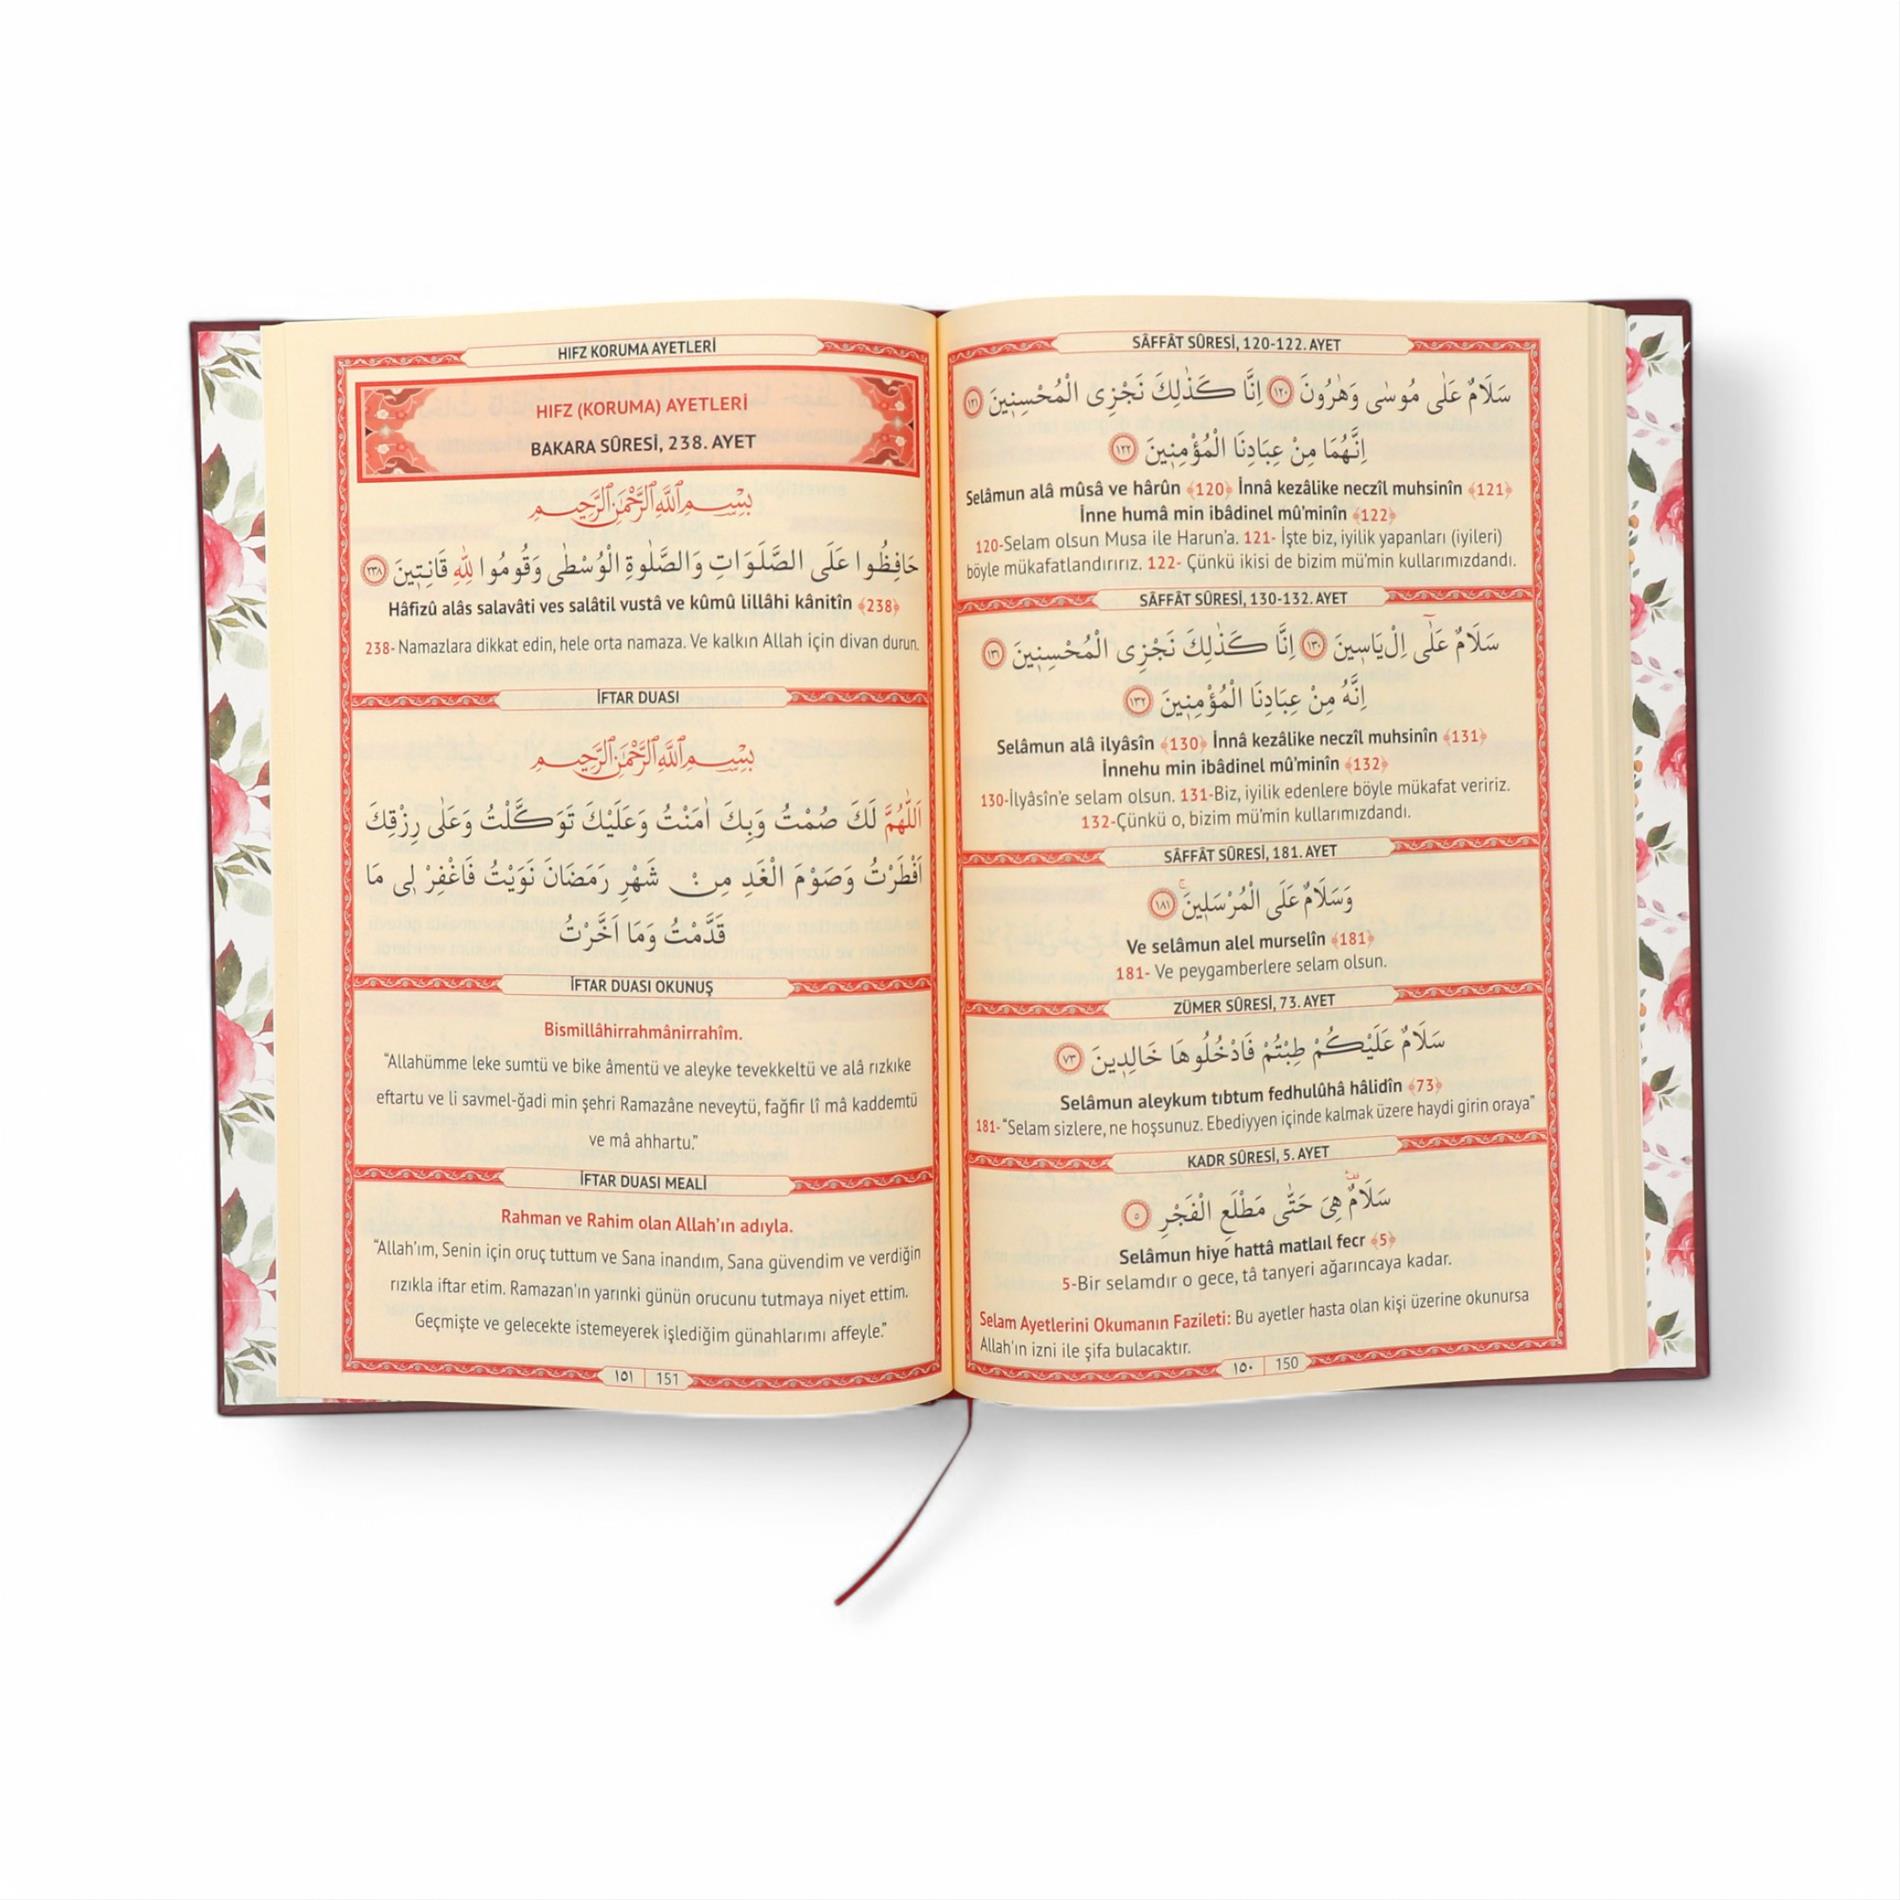 SÂFFÂT SÛRESİ, 120-122. AYET
سَلَامٌ عَلٰى مُوسٰى وَهٰرُونَ ﴿١٢٠﴾ اِنَّا كَذٰلِكَ نَجْزِى الْمُحْسِنٖينَ ﴿١٢١﴾
اِنَّهُمَا مِنْ عِبَادِنَا الْمُؤْمِنٖينَ ﴿١٢٢﴾
Selâmun alâ mûsâ ve hârûn ﴾120﴿ İnnâ kezâlike neczîl muhsinîn ﴾121﴿
İnne humâ min ibâdinel mû'minîn ﴾122﴿
120-Selam olsun Musa ile Harun'a. 121- İşte biz, iyilik yapanları (iyileri)
böyle mükafatlandırırız. 122- Çünkü ikisi de bizim mü'min kullarımızdandı.
SÂFFÂT SÛRESİ, 130-132. AYET
سَلَامٌ عَلٰٓى اِلْ يَاسٖينَ ﴿١٣٠﴾ اِنَّا كَذٰلِكَ نَجْزِى الْمُحْسِنٖينَ ﴿١٣١﴾
اِنَّهُ مِنْ عِبَادِنَا الْمُؤْمِنٖينَ ﴿١٣٢﴾
Selâmun alâ ilyâsîn ﴾130﴿ İnnâ kezâlike neczîl muhsinîn ﴾131﴿
İnnehu min ibâdinel mû'minîn ﴾132﴿
130-İlyâsîn'e selam olsun. 131-Biz, iyilik edenlere böyle mükafat veririz.
132-Çünkü o, bizim mü'min kullarımızdandı.
SÂFFÂT SÛRESİ, 181. AYET
وَسَلَامٌ عَلَى الْمُرْسَلٖينَۚ ﴿١٨١﴾
Ve selâmun alel murselîn ﴾181﴿
181- Ve peygamberlere selam olsun.
ZÜMER SÛRESİ, 73. AYET
سَلَامٌ عَلَيْكُمْ طِبْتُمْ فَادْخُلُوهَا خَالِدٖينَ ﴿٧٣﴾
Selâmun aleykum tıbtum fedhulûhâ hâlidîn ﴾73﴿
181-"Selam sizlere, ne hoşsunuz. Ebediyyen içinde kalmak üzere haydi girin oraya"
KADR SÛRESİ, 5. AYET
سَلَامٌ هِيَ حَتّٰى مَطْلَعِ الْفَجْرِ ﴿٥﴾
Selâmun hiye hattâ matlaıl fecr ﴾5﴿
5-Bir selamdır o gece, tâ tanyeri ağarıncaya kadar.
Selam Ayetlerini Okumanın Fazileti: Bu ayetler hasta olan kişi üzerine okunursa
Allah'ın izni ile şifa bulacaktır.
١٥٠ | 150
HIFZ KORUMA AYETLERİ
HIFZ (KORUMA) AYETLERİ
BAKARA SÛRESİ, 238. AYET
بِسْمِ اللّٰهِ الرَّحْمٰنِ الرَّحٖيمِ
حَافِظُوا عَلَى الصَّلَوَاتِ وَالصَّلٰوةِ الْوُسْطٰى وَقُومُوا لِلّٰهِ قَانِتٖينَ ﴿٢٣٨﴾
Hâfizû alâs salavâti ves salâtil vustâ ve kûmû lillâhi kânitîn ﴾238﴿
238- Namazlara dikkat edin, hele orta namaza. Ve kalkın Allah için divan durun.
İFTAR DUASI
بِسْمِ اللّٰهِ الرَّحْمٰنِ الرَّحٖيمِ
اَللّٰهُمَّ لَكَ صُمْتُ وَبِكَ اٰمَنْتُ وَعَلَيْكَ تَوَكَّلْتُ وَعَلٰى رِزْقِكَ
اَفْطَرْتُ وَصَوْمَ الْغَدِ مِنْ شَهْرِ رَمَضَانَ نَوَيْتُ فَاغْفِرْ لٖى مَا
قَدَّمْتُ وَمَا اَخَّرْتُ
İFTAR DUASI OKUNUŞ
Bismillâhirrahmânirrahîm.
"Allahümme leke sumtü ve bike âmentü ve aleyke tevekkeltü ve alâ rızkıke
eftartu ve li savmel-ğadi min şehri Ramazâne neveytü, fağfir lî mâ kaddemtü
ve mâ ahhartu."
İFTAR DUASI MEALİ
Rahman ve Rahim olan Allah'ın adıyla.
"Allah'ım, Senin için oruç tuttum ve Sana inandım, Sana güvendim ve verdiğin
rızıkla iftar etim. Ramazan'ın yarınki günün orucunu tutmaya niyet ettim.
Geçmişte ve gelecekte istemeyerek işlediğim günahlarımı affeyle."
١٥١ | 151